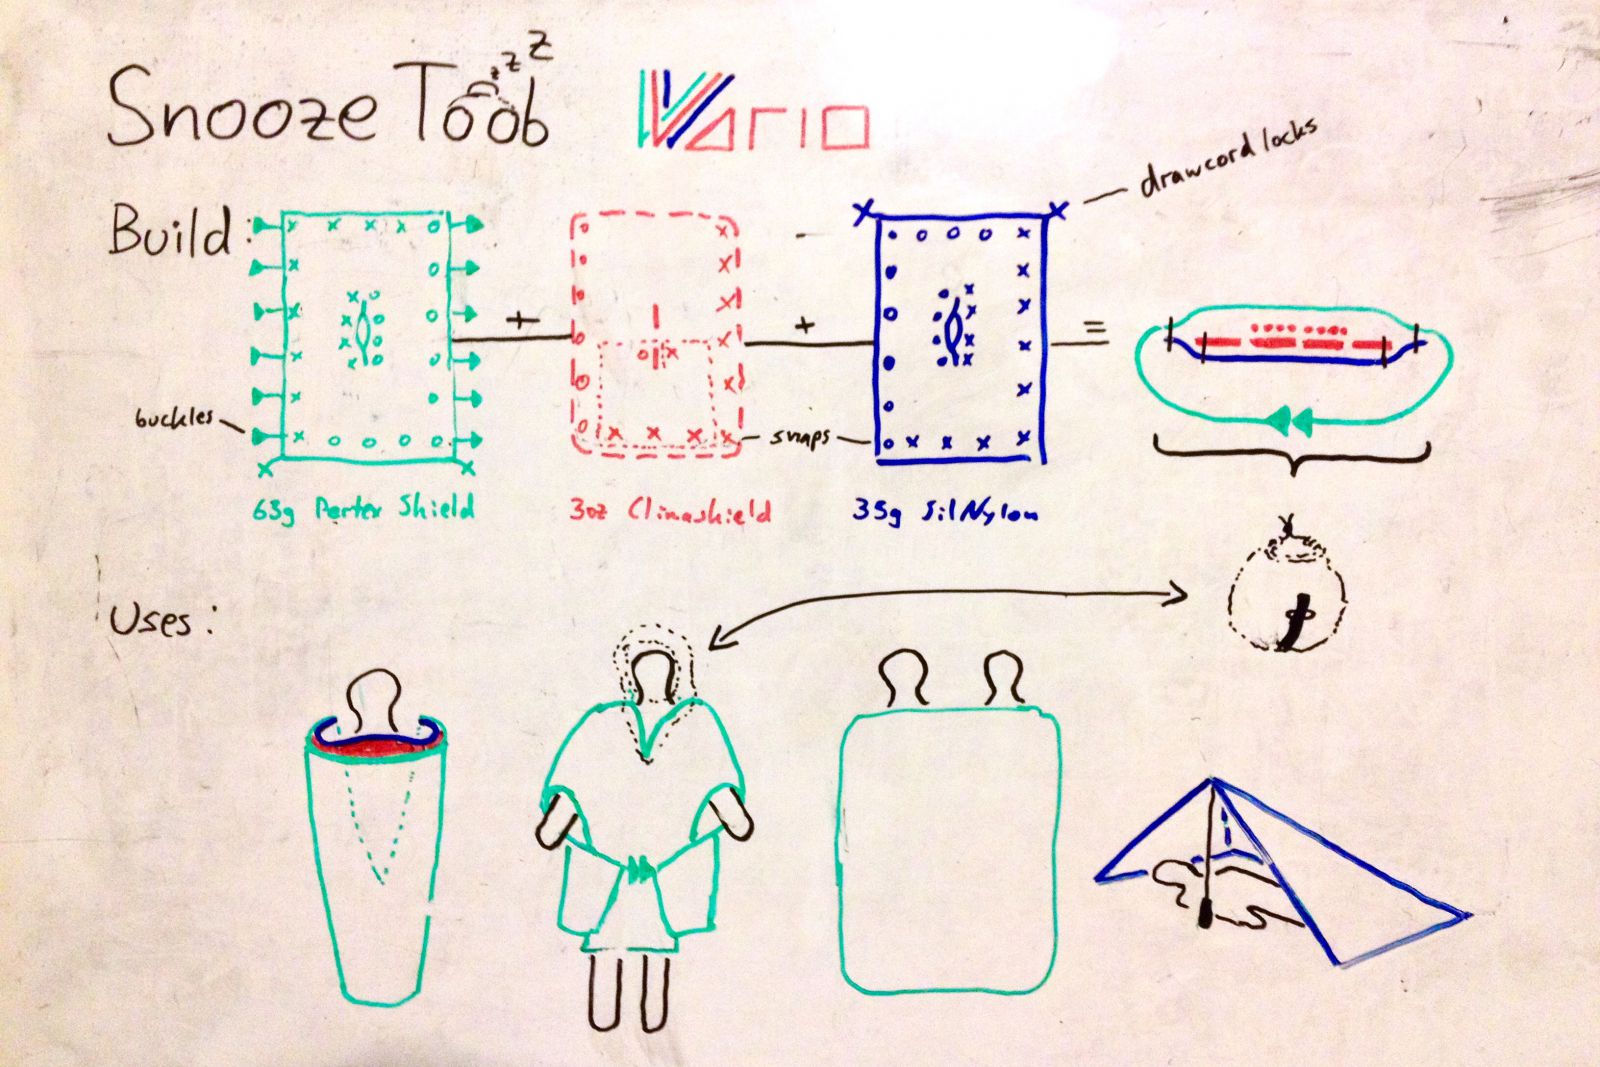 Snooze Toob z z z z
Vario
drawcord locks
Build:
+
+
=
buckles
snaps
63g Pertex Shield
3oz Climashield
35g SilNylon
Uses: